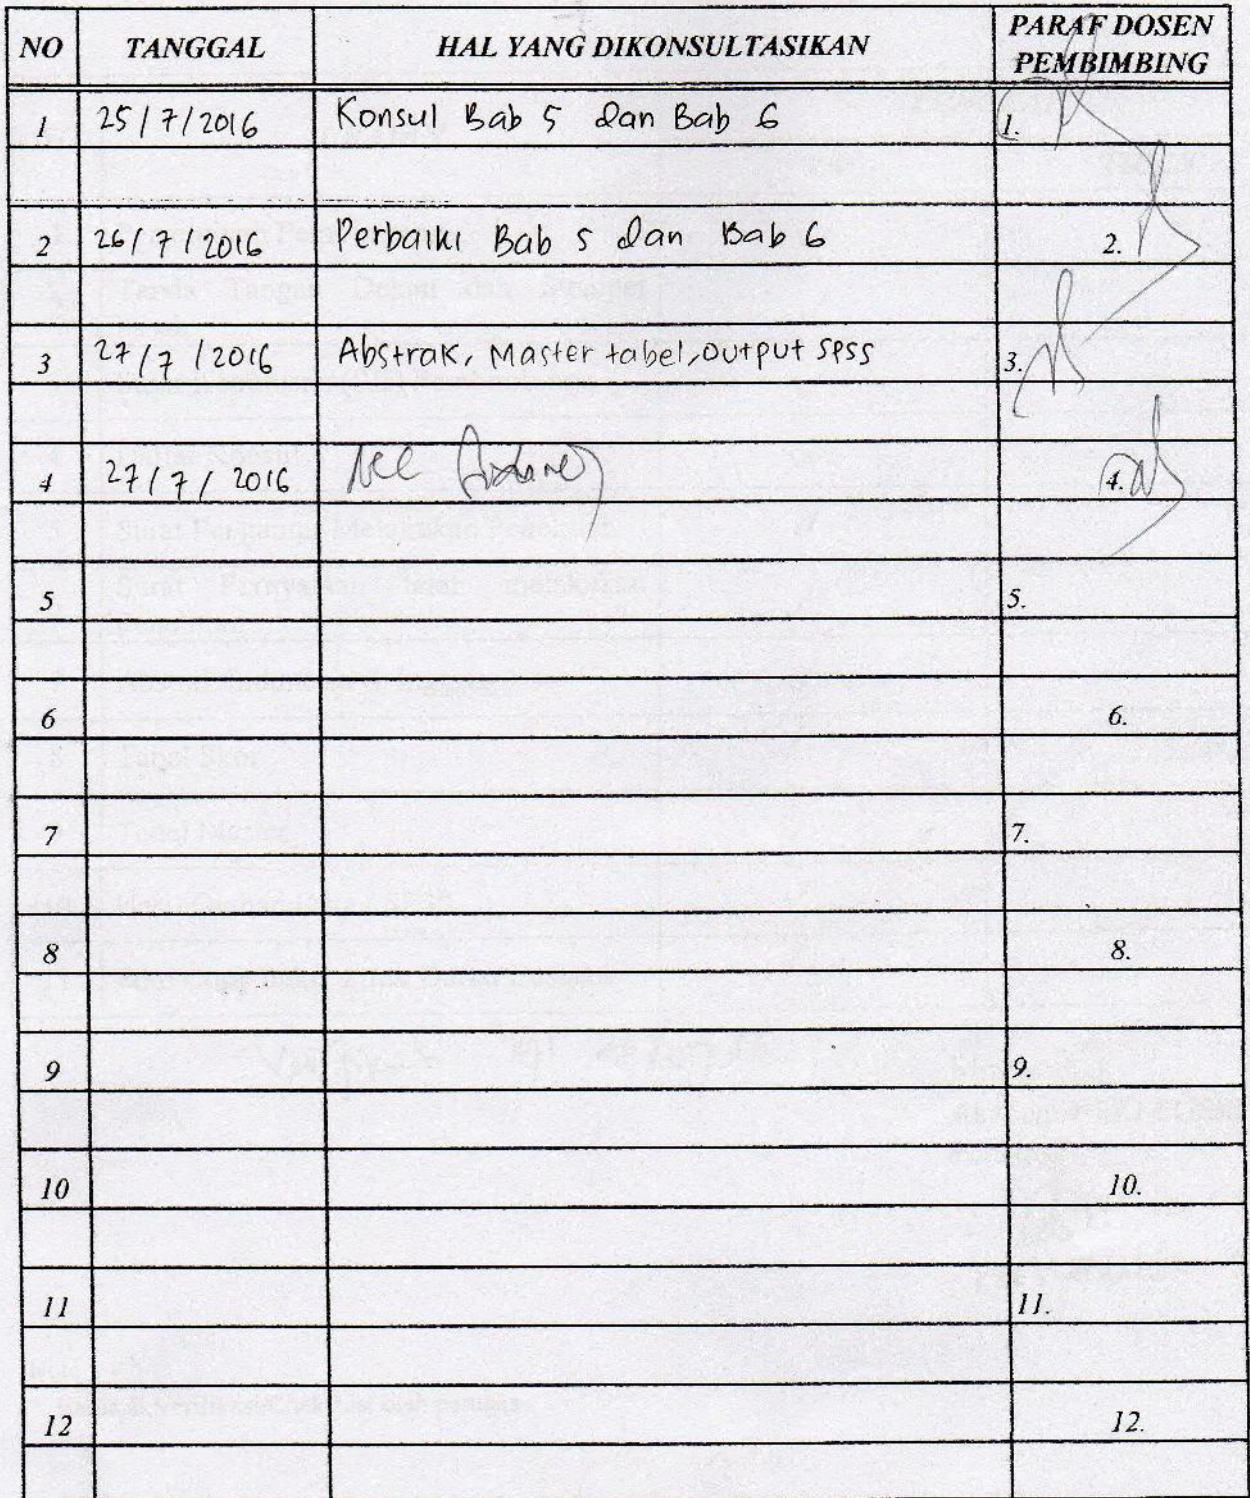 NO TANGGAL HAL YANG DIKONSULTASIKAN PARAF DOSEN PEMBIMBING
1 25/7/2016 Konsul Bab 5 dan Bab 6 1.
2 26/7/2016 Perbaiki Bab 5 dan Bab 6 2.
3 27/7/2016 Abstrak, Master tabel, output spss 3.
4 27/7/2016 4.
5 5.
6 6.
7 7.
8 8.
9 9.
10 10.
11 11.
12 12.